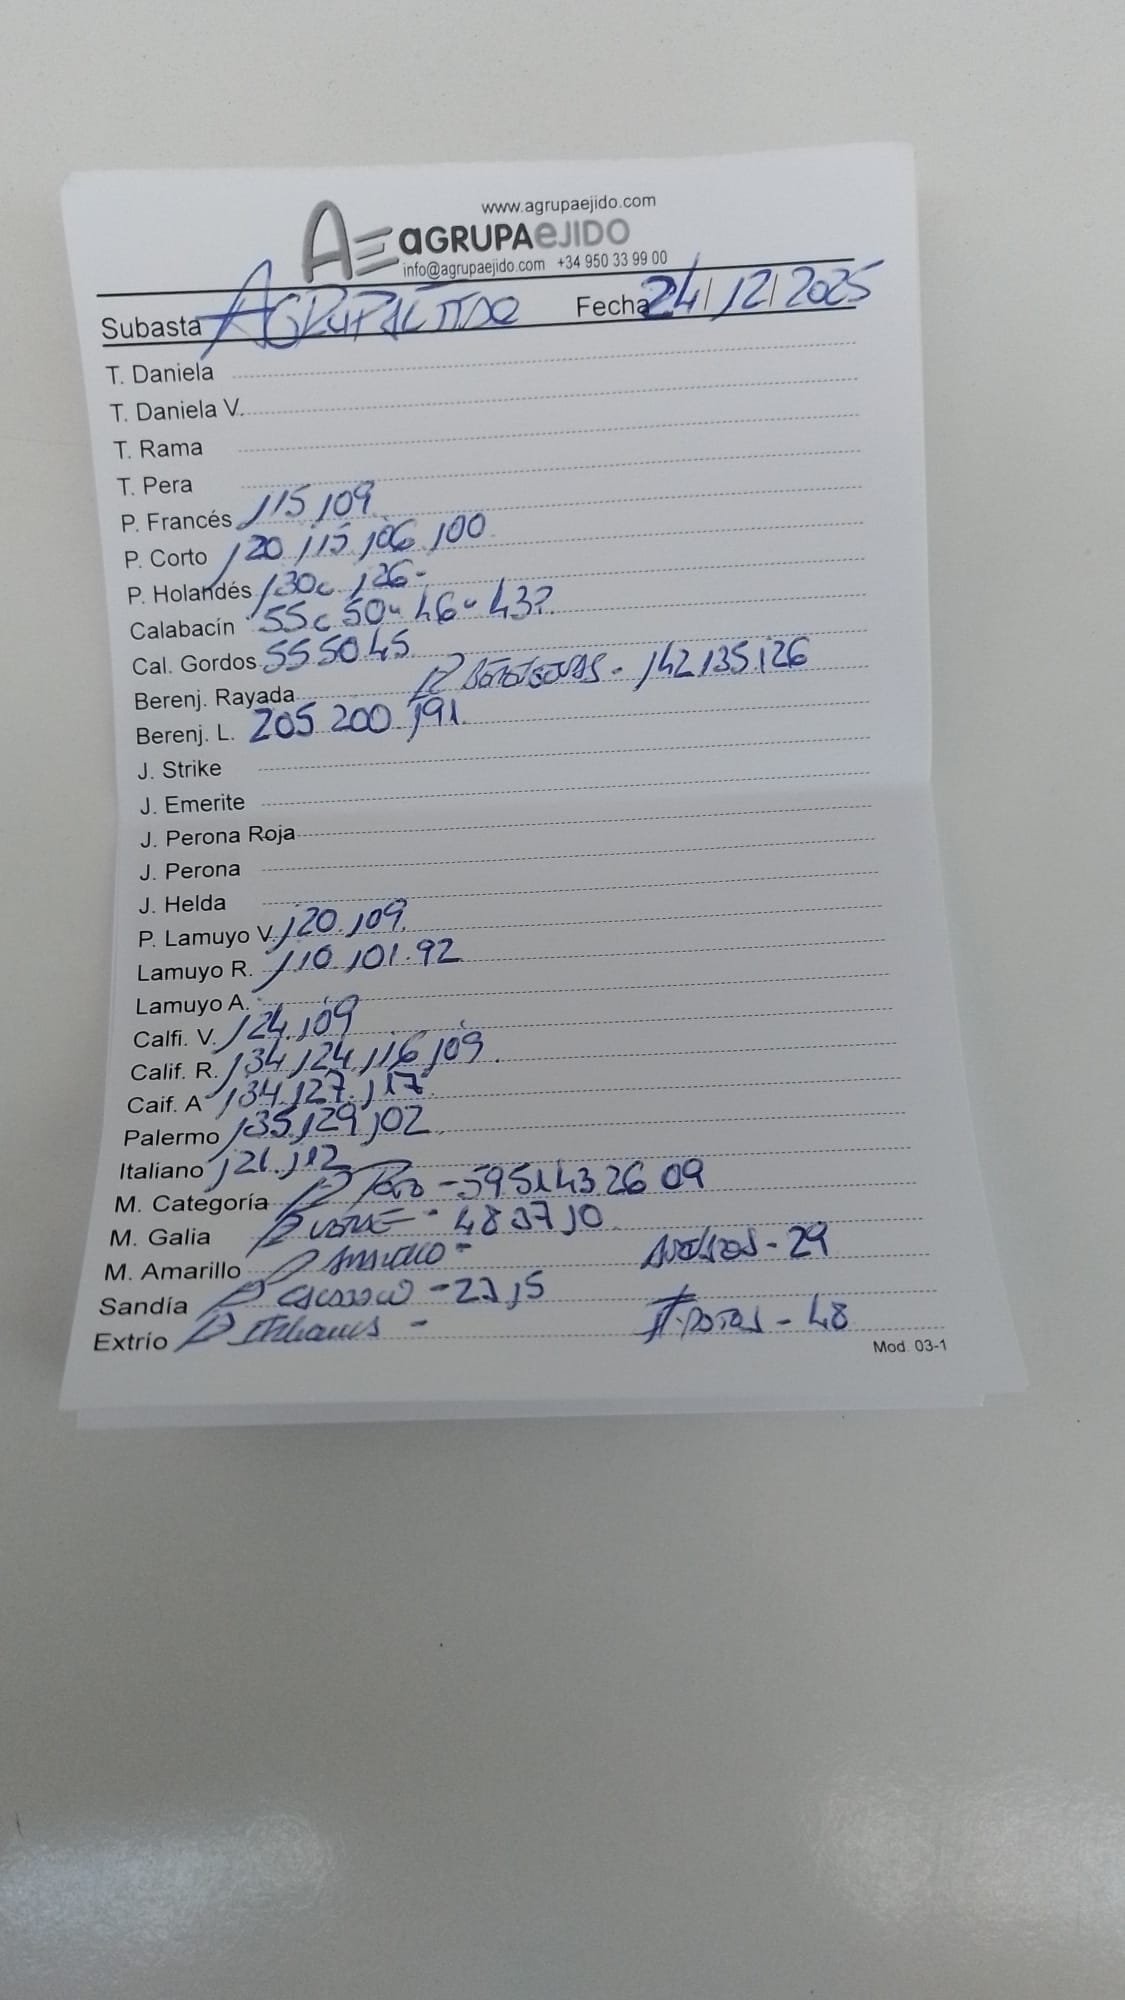 www.agrupaejido.com
AE aGRUPAeJIDO
info@agrupaejido.com +34 950 33 99 00
Subasta AGRUPAEJIDO Fecha 24/12/2025
T. Daniela
T. Daniela V.
T. Rama
T. Pera
P. Francés 115,109
P. Corto 120,115,106,100
P. Holandés 130c 126-
Calabacín 55c 50- 46- 43?
Cal. Gordos 55 50 45
Berenj. Rayada - 142 135.126
Berenj. L. 205 200 191.
J. Strike
J. Emerite
J. Perona Roja
J. Perona
J. Helda
P. Lamuyo V. 120.109.
Lamuyo R. 110 101.92
Lamuyo A.
Calfi. V. 124.109
Calif. R. 134,124,116,109.
Caif. A 134.127.117
Palermo 135,129,102
Italiano 121.112
M. Categoría P - 59 51 43 26 09
M. Galia P - 48 37 10
M. Amarillo P Amarillo - - 29
Sandía P - 27 15
Extrío P Italianos - - 48
Mod. 03-1